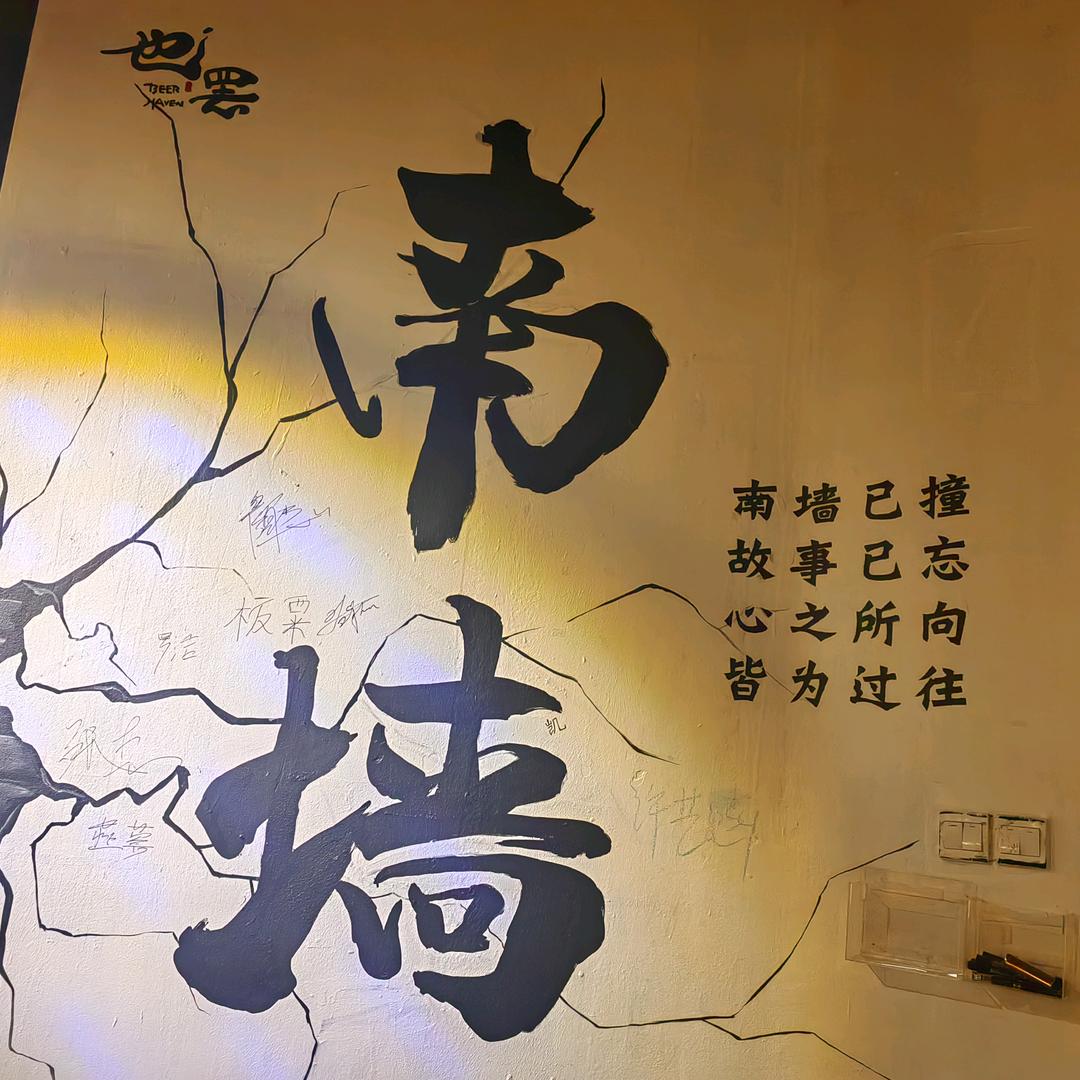 也罢
BEER
HAVEN
南墙
南墙已撞
故事已忘
心之所向
皆为过往
板粟
凯